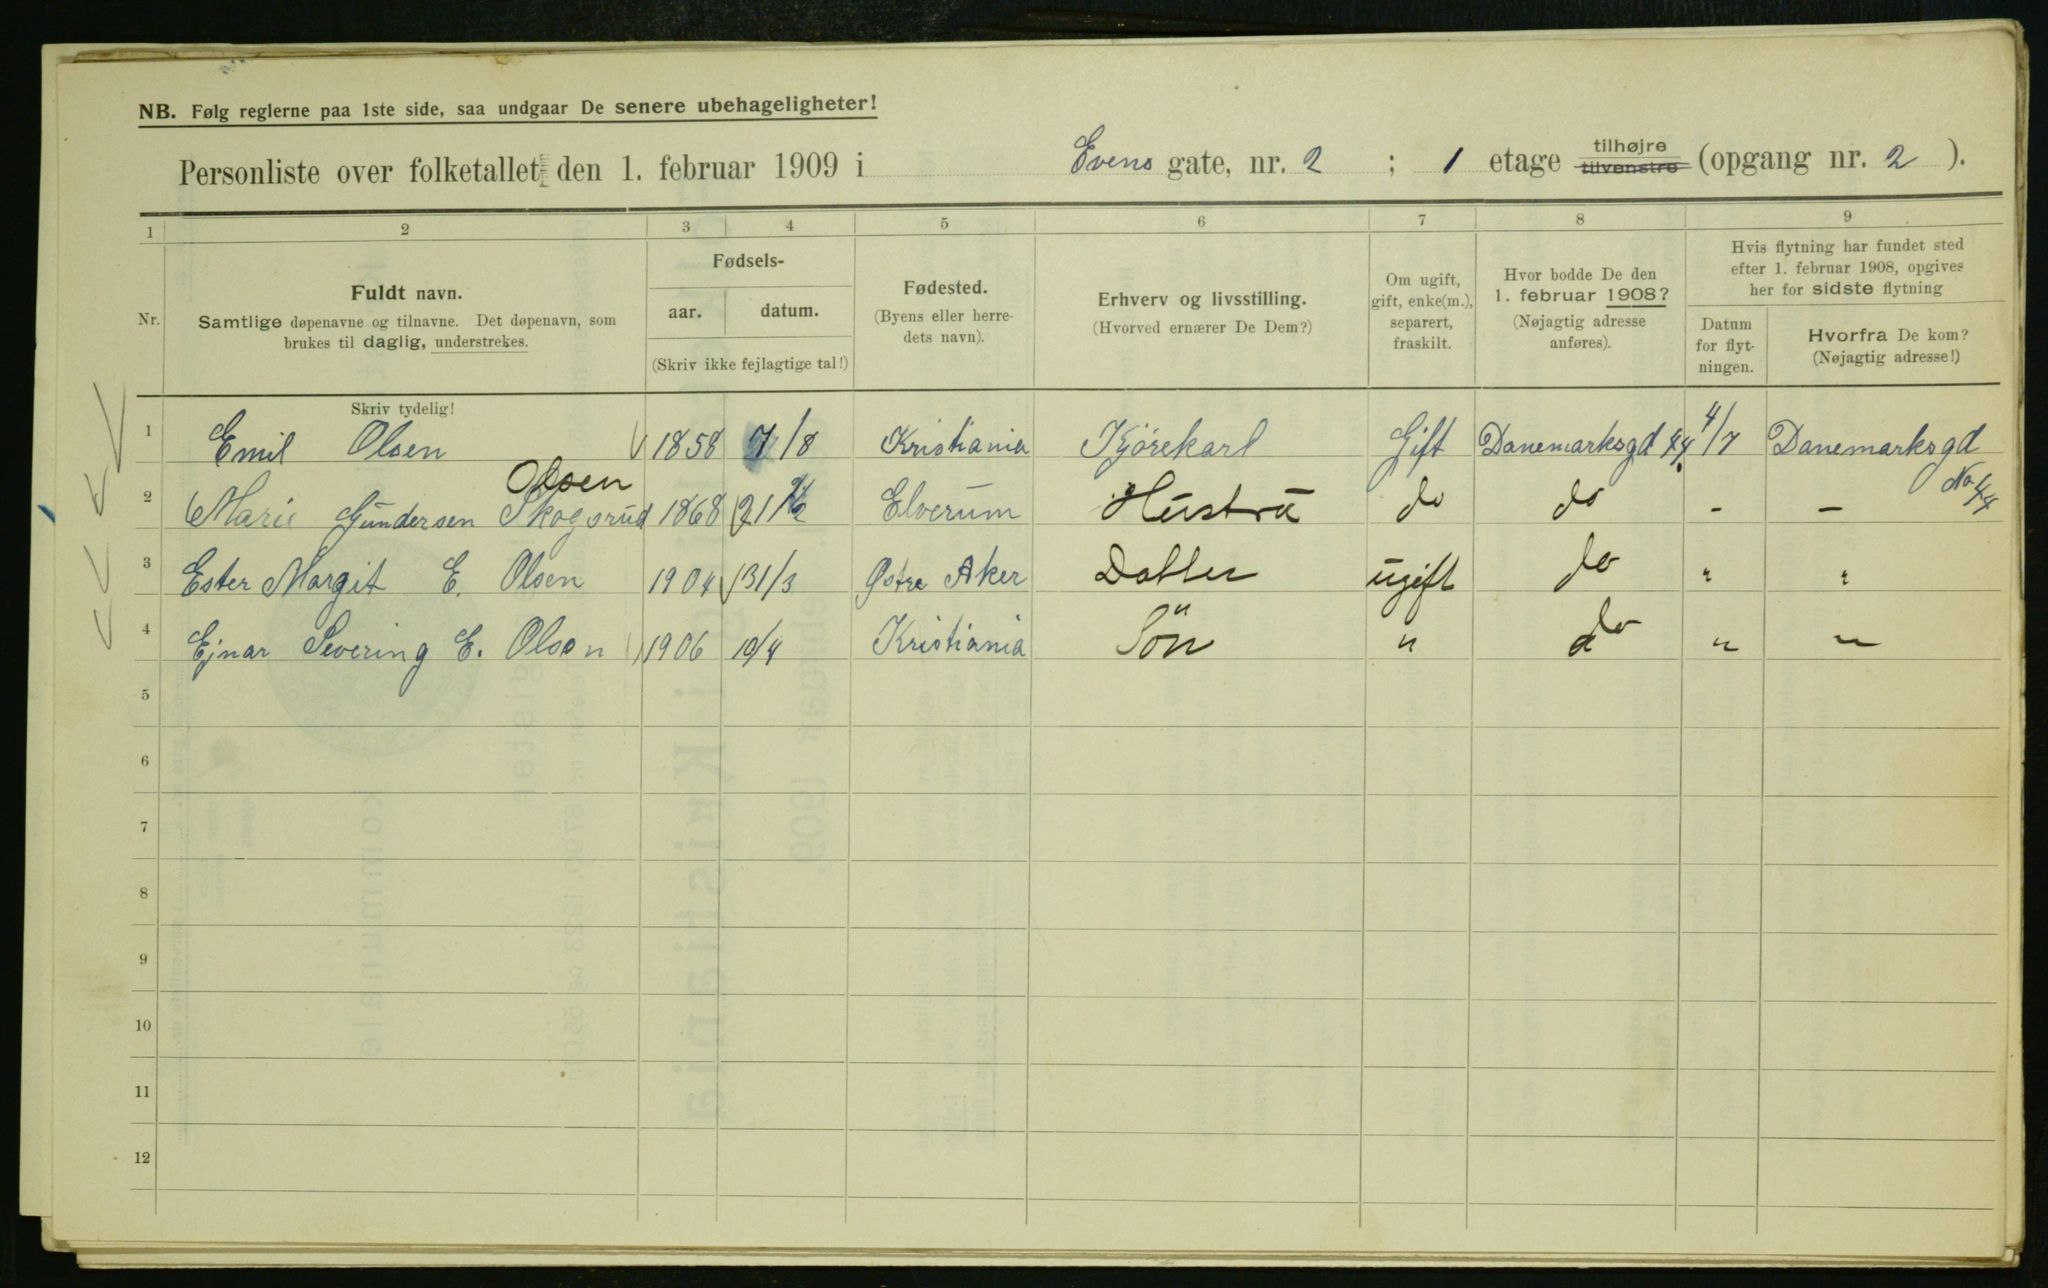 NB. Følg reglerne paa 1ste side, saa undgaar De senere ubehageligheter!
Personliste over folketallet den 1. februar 1909 i Evens gate, nr. 2 ; 1 etage tilhøjre tilvenstre (opgang nr. 2 ).
1 2 3 4 5 6 7 8 9
Nr.
Fuldt navn.
Samtlige døpenavne og tilnavne. Det døpenavn, som
brukes til daglig, understrekes.
Fødsels-
aar. datum.
(Skriv ikke fejlagtige tal!)
Fødested.
(Byens eller herre-
dets navn).
Erhverv og livsstilling.
(Hvorved ernærer De Dem?)
Om ugift,
gift, enke(m.),
separert,
fraskilt.
Hvor bodde De den
1. februar 1908?
(Nøjagtig adresse
anføres).
Hvis flytning har fundet sted
efter 1. februar 1908, opgives
her for sidste flytning
Datum
for flyt-
ningen.
Hvorfra De kom?
(Nøjagtig adresse!)
Skriv tydelig!
1 Emil Olsen 1858 7/8 Kristiania Kjørekarl Gift Danemarksgd 44 4/7 Danemarksgd
No 44
Olsen
2 Marie Gundersen Skogsrud 1868 21 Elverum Hustru do do - -
3 Ester Margit E. Olsen 1904 31/3 Østre Aker Datter ugift do " "
4 Ejnar Severing E. Olsen 1906 10/4 Kristiania Søn " do " "
5
6
7
8
9
10
11
12